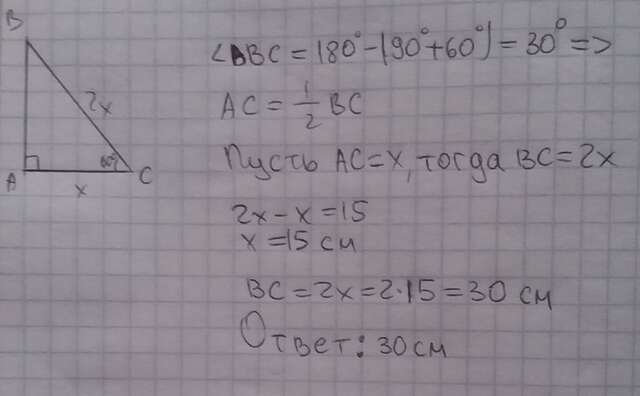 B
2x
A
60°
C
x
∠ABC = 180° - (90° + 60°) = 30° =>
AC = 1/2 BC
Пусть AC = x, тогда BC = 2x
2x - x = 15
x = 15 см
BC = 2x = 2·15 = 30 см
Ответ: 30 см